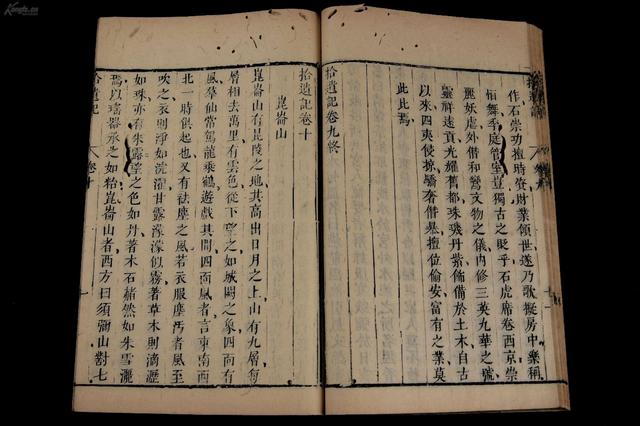 作石崇功擅時資財業傾世遂乃歌擬房中樂稱
恒舞季庭管室豈獨古之貶乎石虎席卷西京崇
麗妖虐外僭和鸞文物之儀內修三英九華之號
靈祥遠貢光耀舊都珠璣丹紫飾備於土木自古
以來四夷侵掠驕奢僭暴擅位偷安富有之業莫
此比焉
拾遺記卷九終
拾遺記卷十
崑崙山
崑崙山有昆陵之地其高出日月之上山有九層每
層相去萬里有雲色從下望之如城闕之象四面有
風羣仙常駕龍乘鶴遊戲其間四面風者言東南西
北一時俱起也又有袪塵之風若衣服塵汚者風至
吹之衣則淨如浣濯甘露濛濛似霧著草木則滴瀝
如珠亦有朱露望之色如丹著木石赭然如朱雪灑
焉以瑤器承之如粭崑崙山者西方曰須彌山對七
拾遺記
卷十
Kongfz.cn